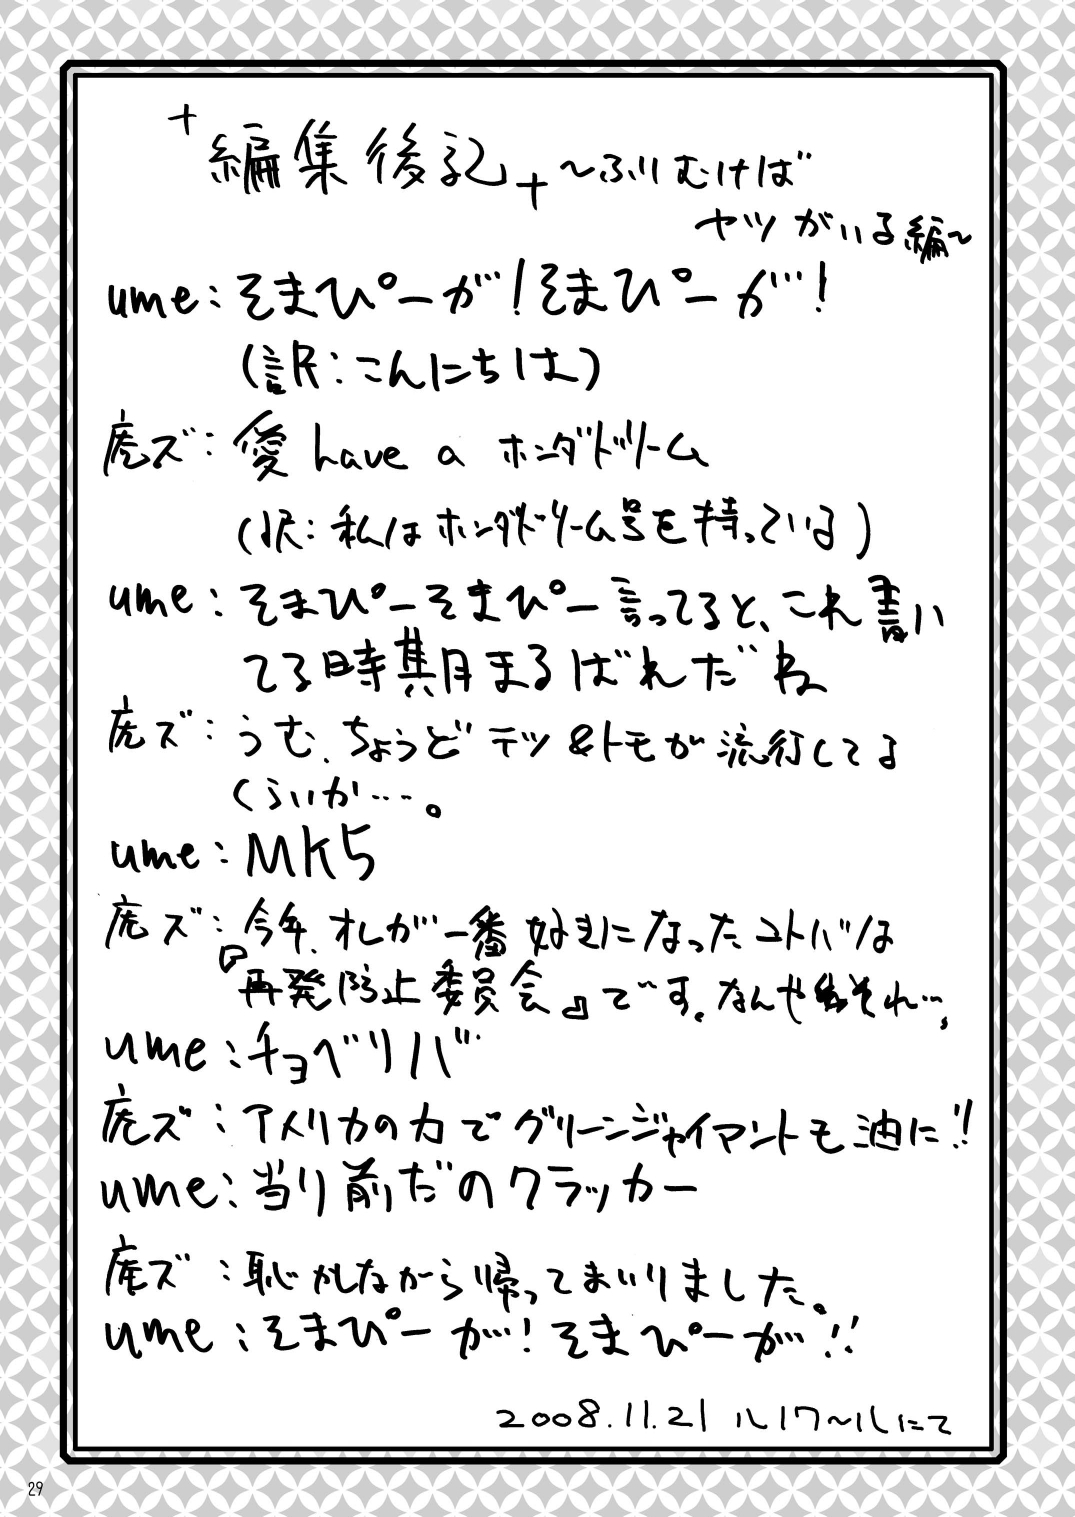 +編集後記+ ~ふりむけば
ヤツがいる編~
ume:そまぴーが!そまぴーが!
(訳:こんにちは)
虎ズ:愛 have a ホンダドリーム
(訳:私はホンダドリーム号を持っている)
ume:そまぴーそまぴー言ってると、これ書い
てる時期まるばれだね
虎ズ:うむ、ちょうどテツ&トモが流行してる
くらいか…。
ume:MK5
虎ズ:今年、オレが一番好きになったコトバは
『再発防止委員会』です。なんやそれ…。
ume:チョベリバ
虎ズ:アメリカの力でグリーンジャイアントも油に!!
ume:当り前だのクラッカー
虎ズ:恥かしながら帰ってまいりました。
ume:そまぴーが!そまぴーが!!
2008.11.21 ルノワ~ルにて
29